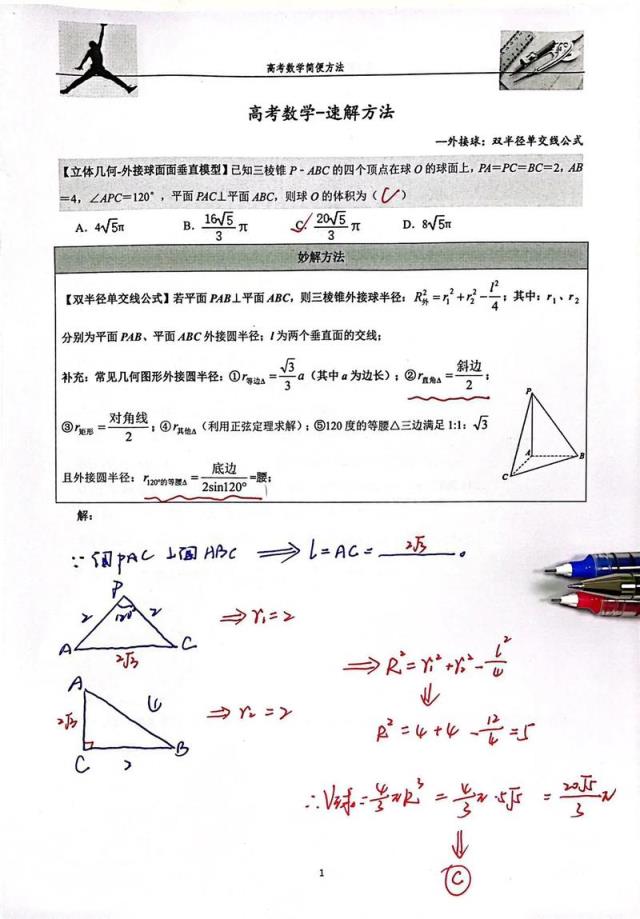 高考数学简便方法
高考数学-速解方法
—外接球：双半径单交线公式
【立体几何-外接球面面垂直模型】已知三棱锥 P - ABC 的四个顶点在球 O 的球面上，PA=PC=BC=2，AB
=4，∠APC=120°，平面 PAC⊥平面 ABC，则球 O 的体积为（ C ）
A. 4√5π B. 16√5/3 π C. 20√5/3 π D. 8√5π
妙解方法
【双半径单交线公式】若平面 PAB⊥平面 ABC，则三棱锥外接球半径：R外²=r₁²+r₂²-l²/4；其中：r₁、r₂
分别为平面 PAB、平面 ABC 外接圆半径；l 为两个垂直面的交线；
补充：常见几何图形外接圆半径：①r等边△=√3/3 a（其中 a 为边长）；②r直角△=斜边/2；
③r矩形=对角线/2；④r其他△（利用正弦定理求解）；⑤120 度的等腰△三边满足 1:1：√3
且外接圆半径：r120°的等腰△=底边/2sin120°=腰；
P
A
B
C
解：
∵ 面PAC⊥面ABC ⟹ l=AC= 2√3 。
P
2 120° 2 ⟹ r₁=2
A 2√3 C
⟹ R²=r₁²+r₂²-l²/4
A
2√3 4 ⟹ r₂=2
⇓
R²=4+4-12/4=5
C 2 B
∴V球=4/3πR³=4/3π·5√5=20√5/3π
⇓
Ⓒ
1